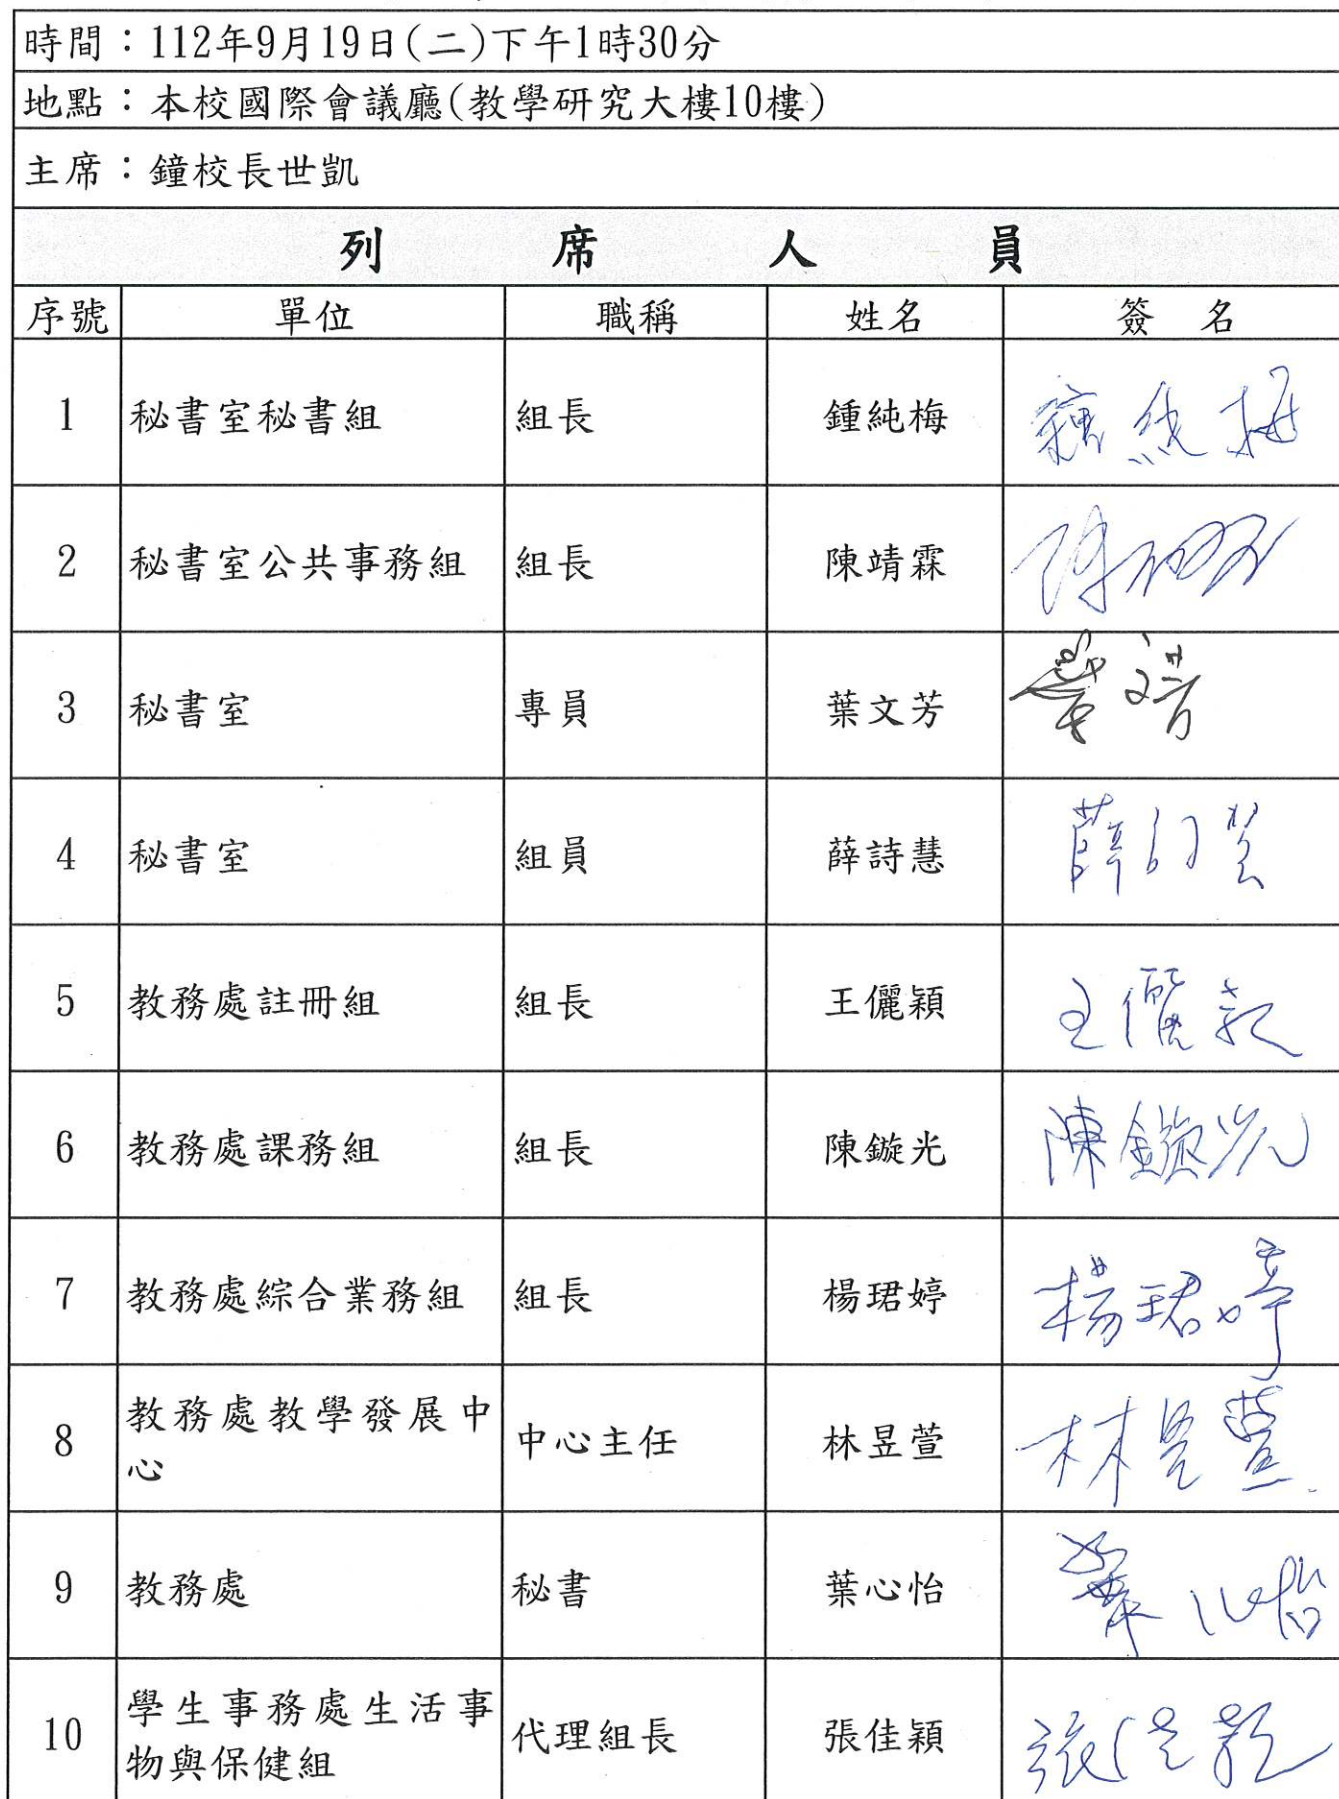 時間：112年9月19日(二)下午1時30分
地點：本校國際會議廳(教學研究大樓10樓)
主席：鐘校長世凱
列席人員
序號 單位 職稱 姓名 簽 名
1 秘書室秘書組 組長 鍾純梅 鍾純梅
2 秘書室公共事務組 組長 陳靖霖
3 秘書室 專員 葉文芳
4 秘書室 組員 薛詩慧 薛詩慧
5 教務處註冊組 組長 王儷穎 王儷穎
6 教務處課務組 組長 陳鏇光 陳鏇光
7 教務處綜合業務組 組長 楊珺婷 楊珺婷
8 教務處教學發展中
心 中心主任 林昱萱 林昱萱
9 教務處 秘書 葉心怡 葉心怡
10 學生事務處生活事
物與保健組 代理組長 張佳穎 張佳穎